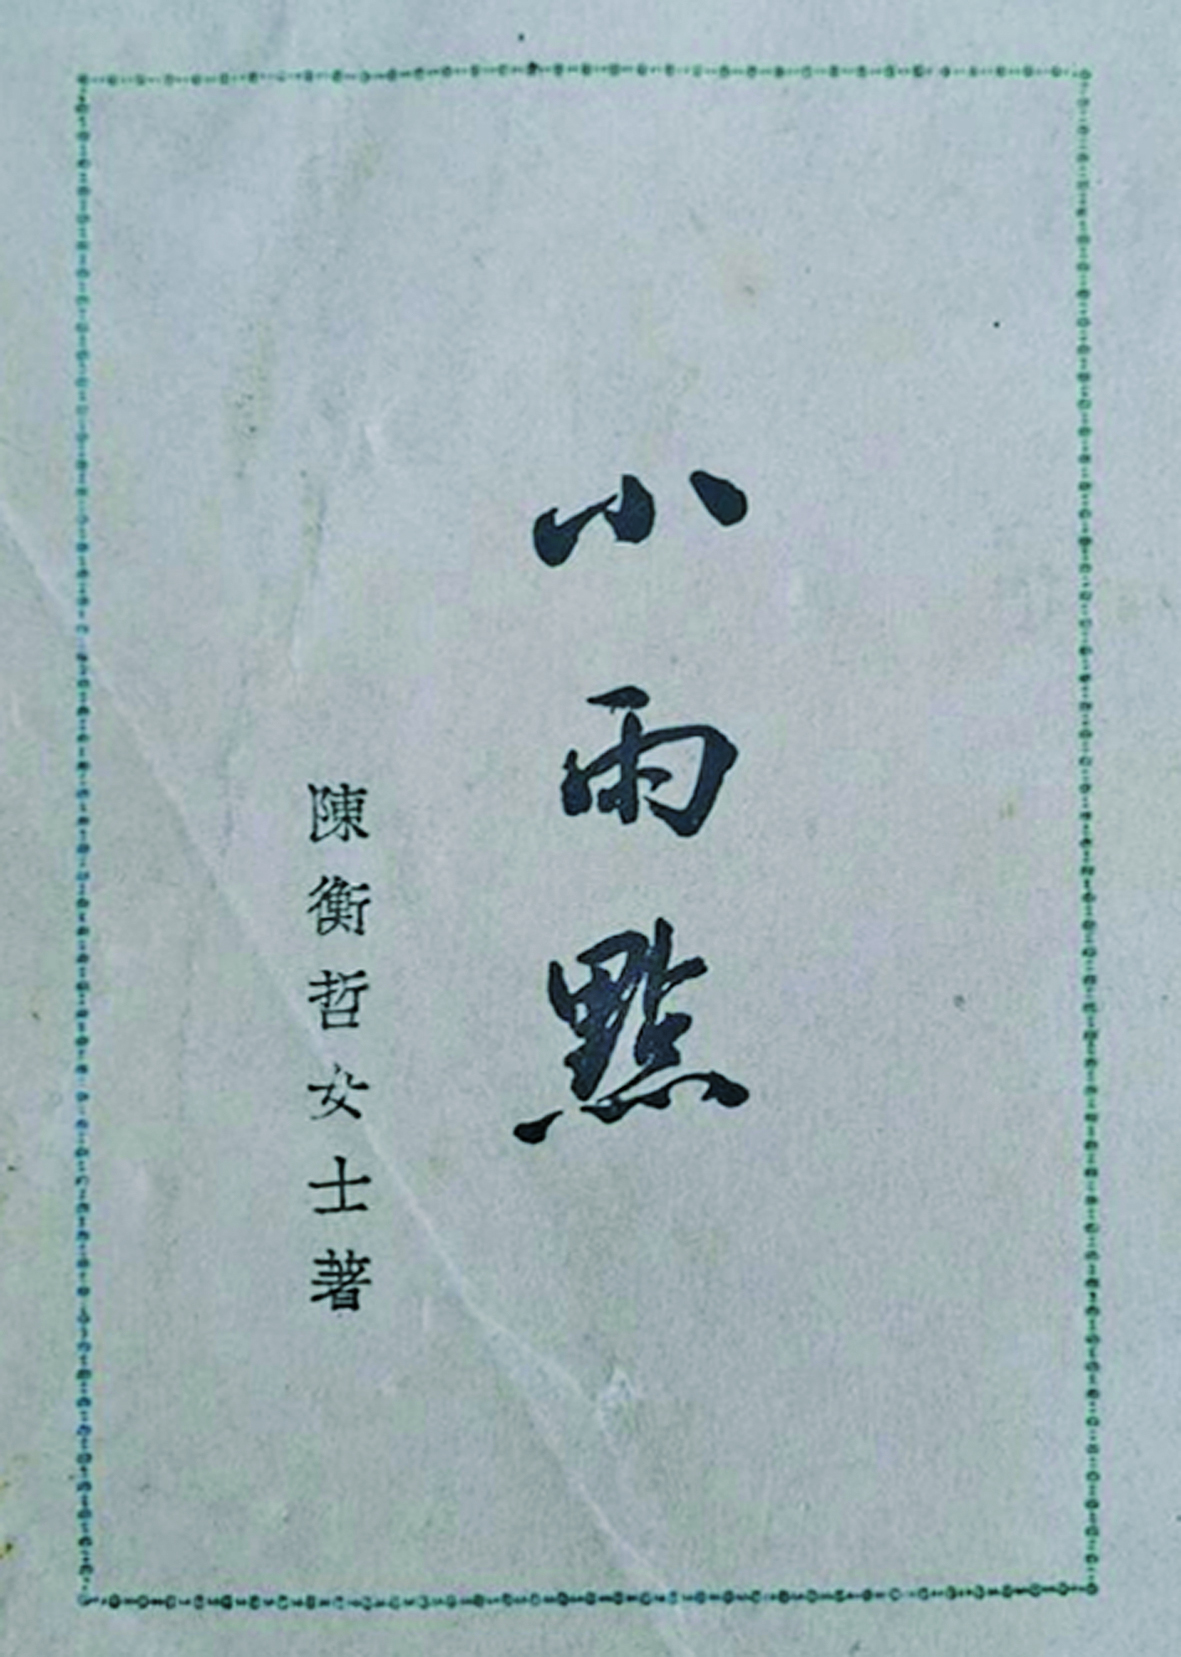 小雨點
陳衡哲女士著